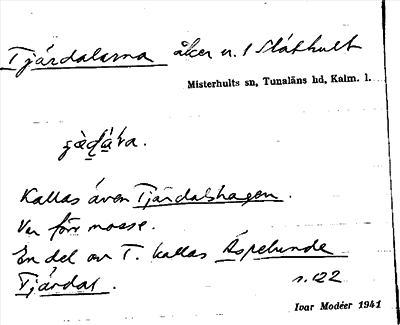 Tjärdalarna åker n. 1 Slåthult
Misterhults sn, Tunaläns hd, Kalm. l.
Kallas även Tjärdalshagen.
Var förr mosse.
En del av T. kallas Aspelunde
Tjärdal. s. 122
Ivar Modéer 1941